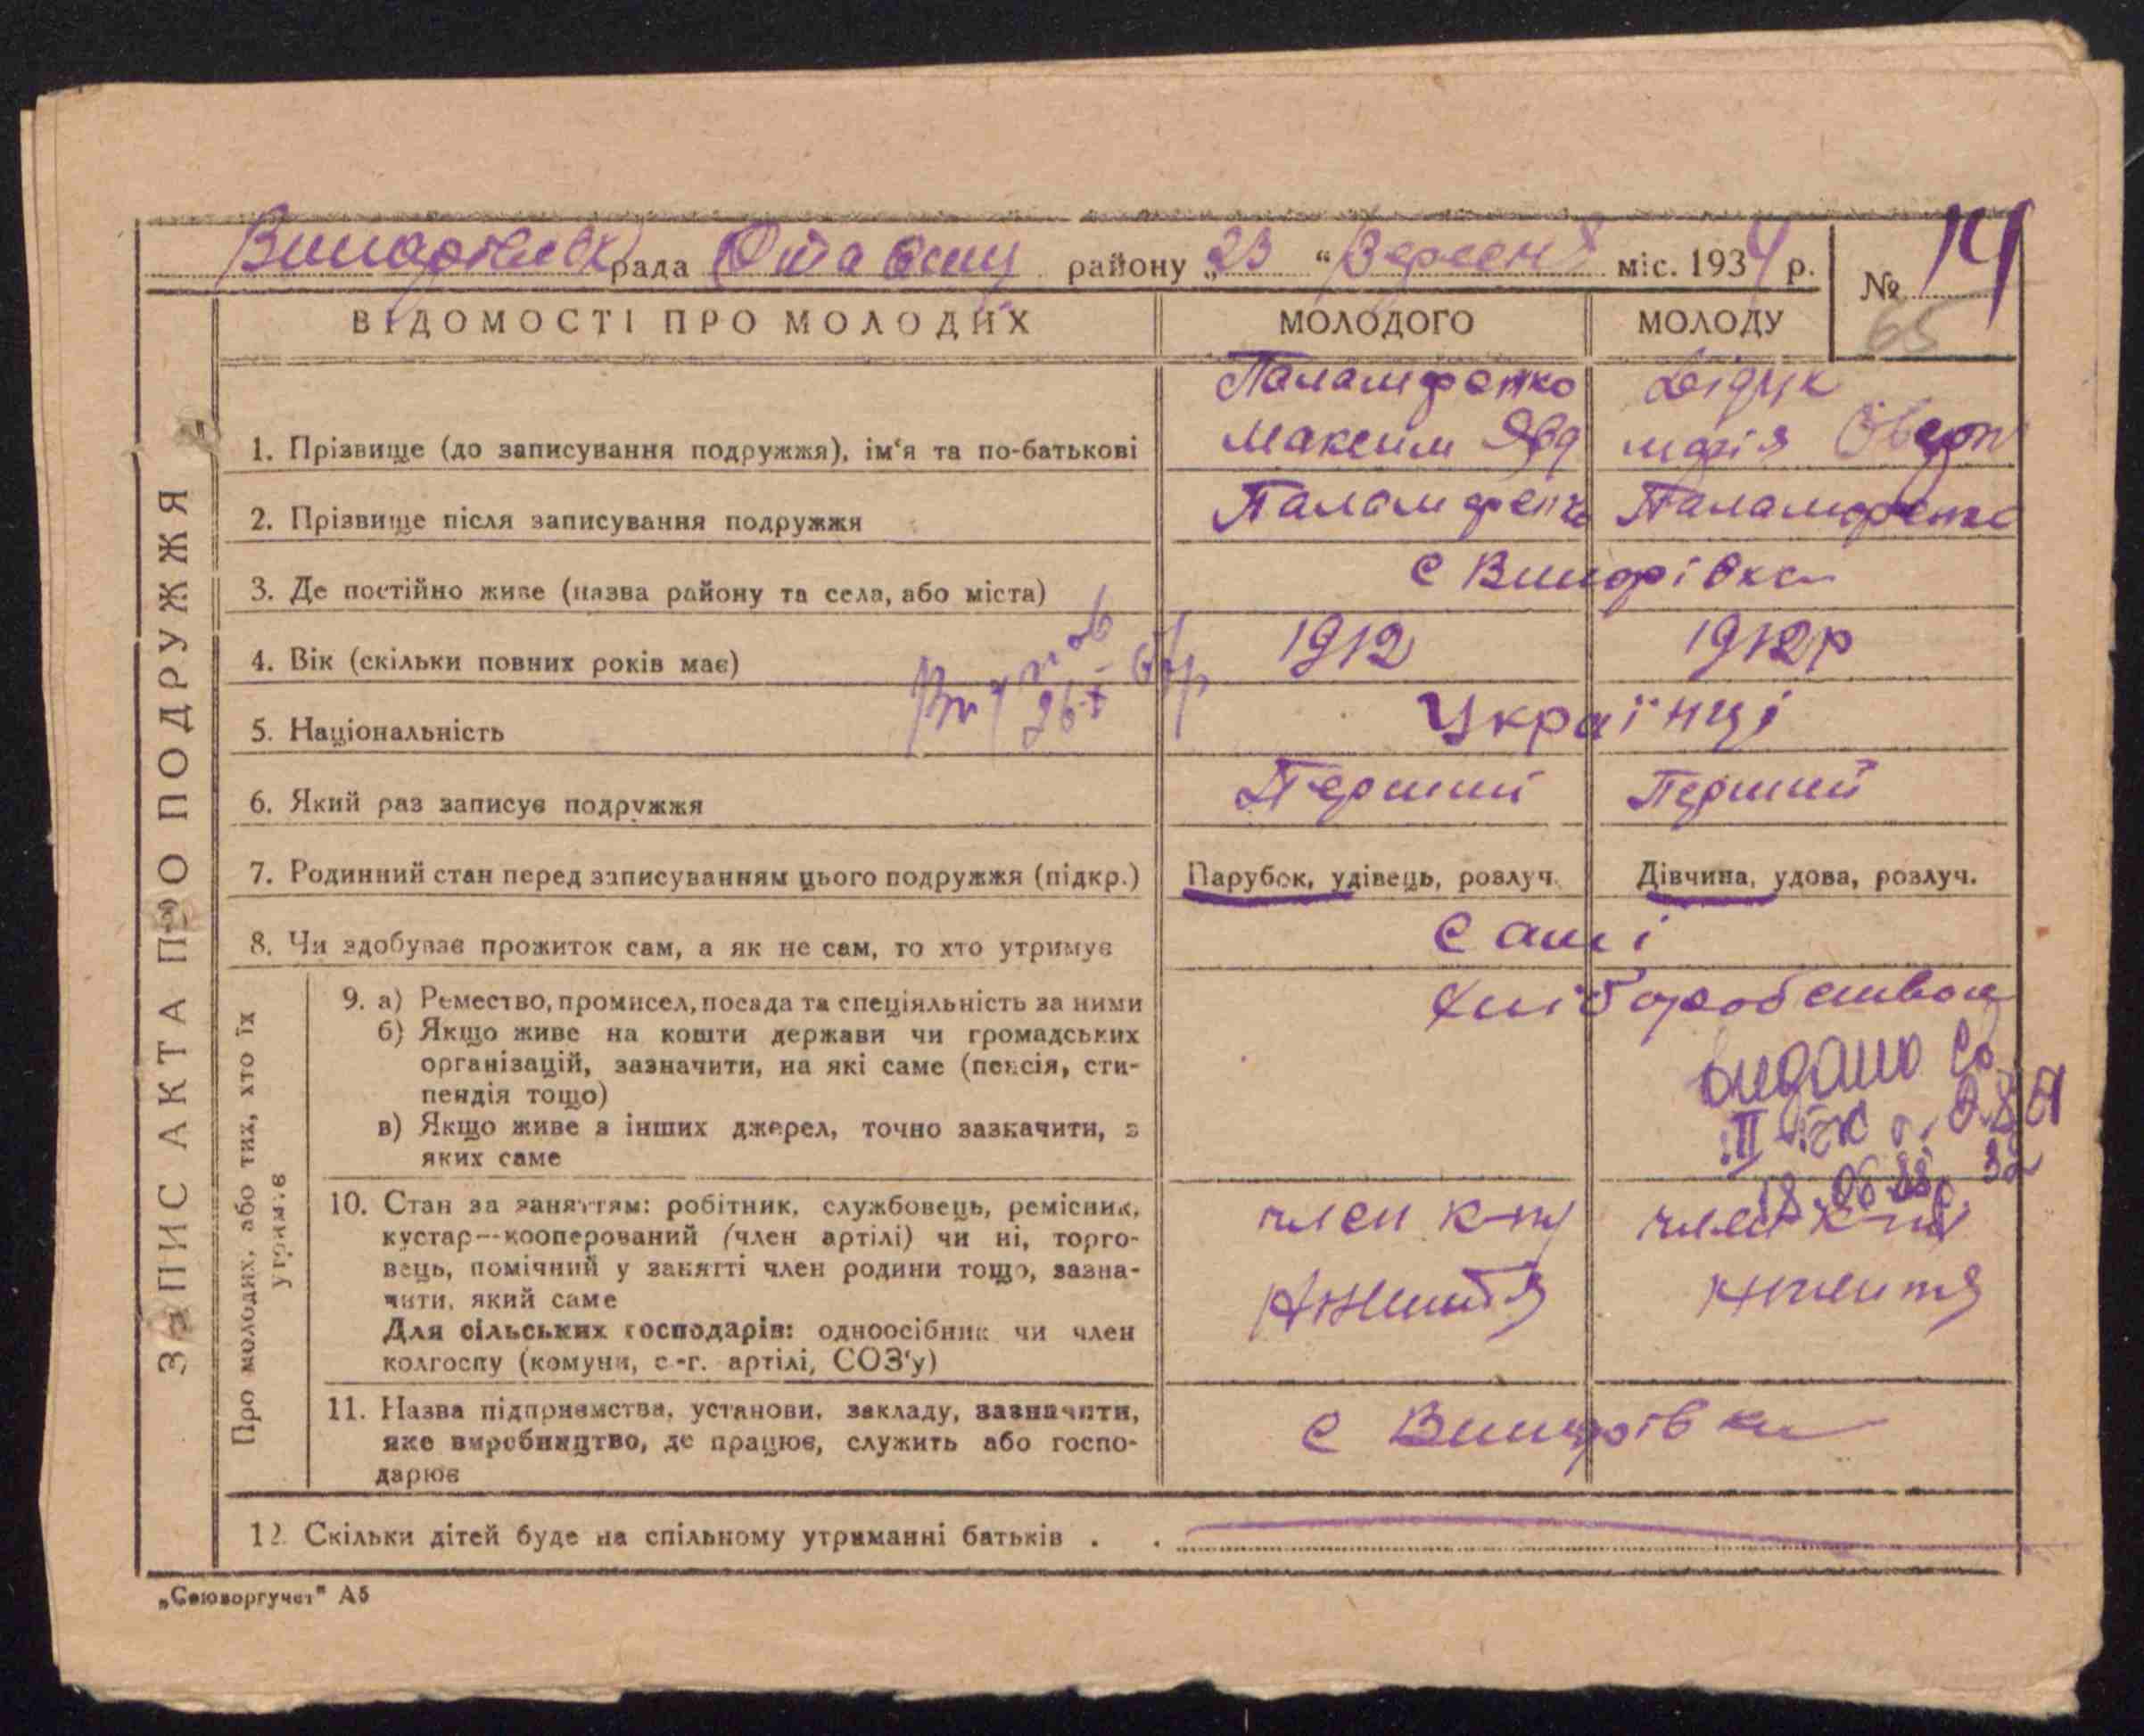 рада району „23 “ Вересня міс. 1934 р.
№ 14
65
ВІДОМОСТІ ПРО МОЛОДИХ МОЛОДОГО МОЛОДУ
ЗАПИС АКТА ПРО ПОДРУЖЖЯ
Паламаренко Дідук
1. Прізвище (до записування подружжя), ім‘я та по-батькові Максим Явд Марія
2. Прізвище після записування подружжя Паламаренко Паламаренко
3. Де постійно живе (назва району та села, або міста) с Вишарівка
4. Вік (скільки повних років має) 1912 1912р
5. Національність Українці
6. Який раз записує подружжя Перший Перший
7. Родинний стан перед записуванням цього подружжя (підкр.) Парубок, удівець, розлуч. Дівчина, удова, розлуч.
8. Чи здобуває прожиток сам, а як не сам, то хто утримує Самі
Про молодих, або тих, хто їх утримує
9. а) Ремество, промисел, посада та спеціяльність за ними Хліборобством
б) Якщо живе на кошти держави чи громадських
організацій, зазначити, на які саме (пенсія, сти-
пендія тощо)
в) Якщо живе з інших джерел, точно зазначити, з
яких саме
видано
10. Стан за заняттям: робітник, службовець, ремісник, член к-пу член к-пу
кустар—кооперований (член артілі) чи ні, торго-
вець, помічний у занятті член родини тощо, зазна-
чити, який саме
Для сільських господарів: одноосібник чи член
колгоспу (комуни, с.-г. артілі, СОЗ‘у)
11. Назва підприємства, установи, закладу, зазначити, с Вишарівка
яке виробництво, де працює, служить або госпо-
дарює
12. Скільки дітей буде на спільному утриманні батьків . .
„Союзоргучет" А5